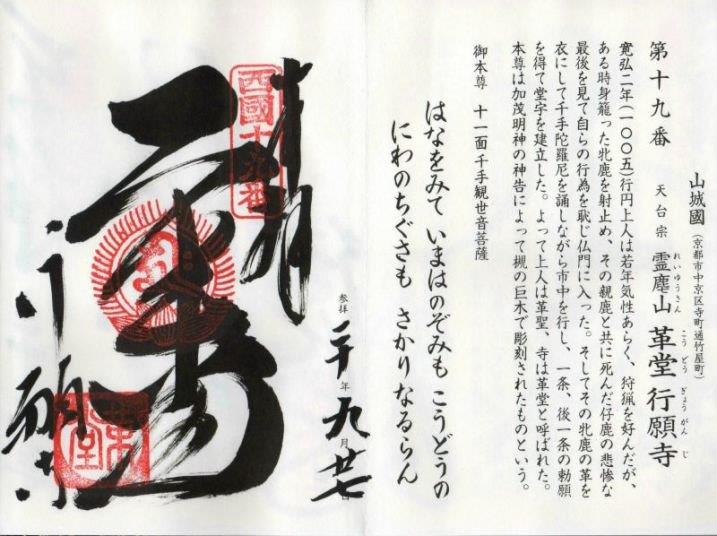 山城國(京都市中京区寺町通竹屋町)
第十九番 天台宗 霊麀山 革堂 行願寺
れいゆうさん こうどう ぎょうがんじ
寛弘二年(一〇〇五)行円上人は若年気性あらく、狩猟を好んだが、
ある時身籠った牝鹿を射止め、その親鹿と共に死んだ仔鹿の悲惨な
最後を見て自らの行為を恥じ仏門に入った。そしてその牝鹿の革を
衣にして千手陀羅尼を誦しながら市中を行し、一条、後一条の勅願
を得て堂宇を建立した。よって上人は革聖、寺は革堂と呼ばれた。
本尊は加茂明神の神告によって槻の巨木で彫刻されたものという。
御本尊 十一面千手観世音菩薩
はなをみて いまはのぞみも こうどうの
にわのちぐさも さかりなるらん
参拝 二十年九月廿七日
奉拝
西國十九番
革堂
行願寺